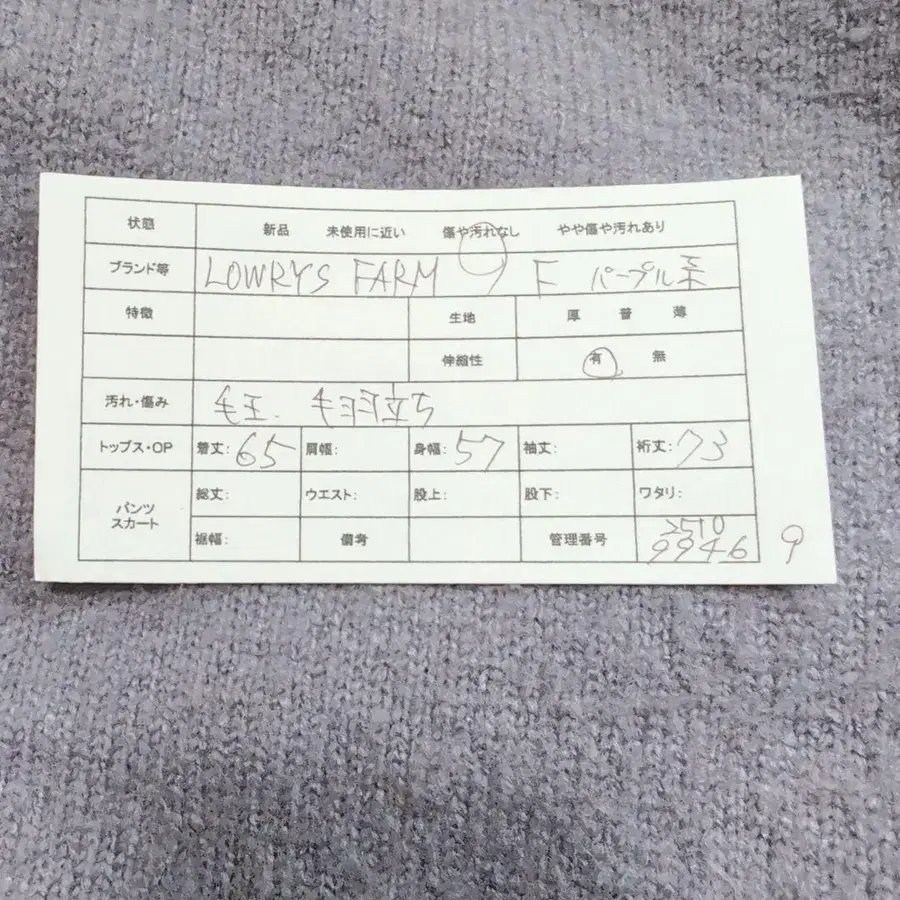 状態 新品 未使用に近い 傷や汚れなし やや傷や汚れあり
ブランド等 LOWRYS FARM F パープル系
特徴 生地 厚 普 薄
伸縮性 有 無
汚れ・傷み 毛玉、毛羽立ち
トップス・OP 着丈:65 肩幅: 身幅:57 袖丈: 裄丈:73
パンツ スカート 総丈: ウエスト: 股上: 股下: ワタリ:
裾幅: 備考 管理番号 2510
9946 9